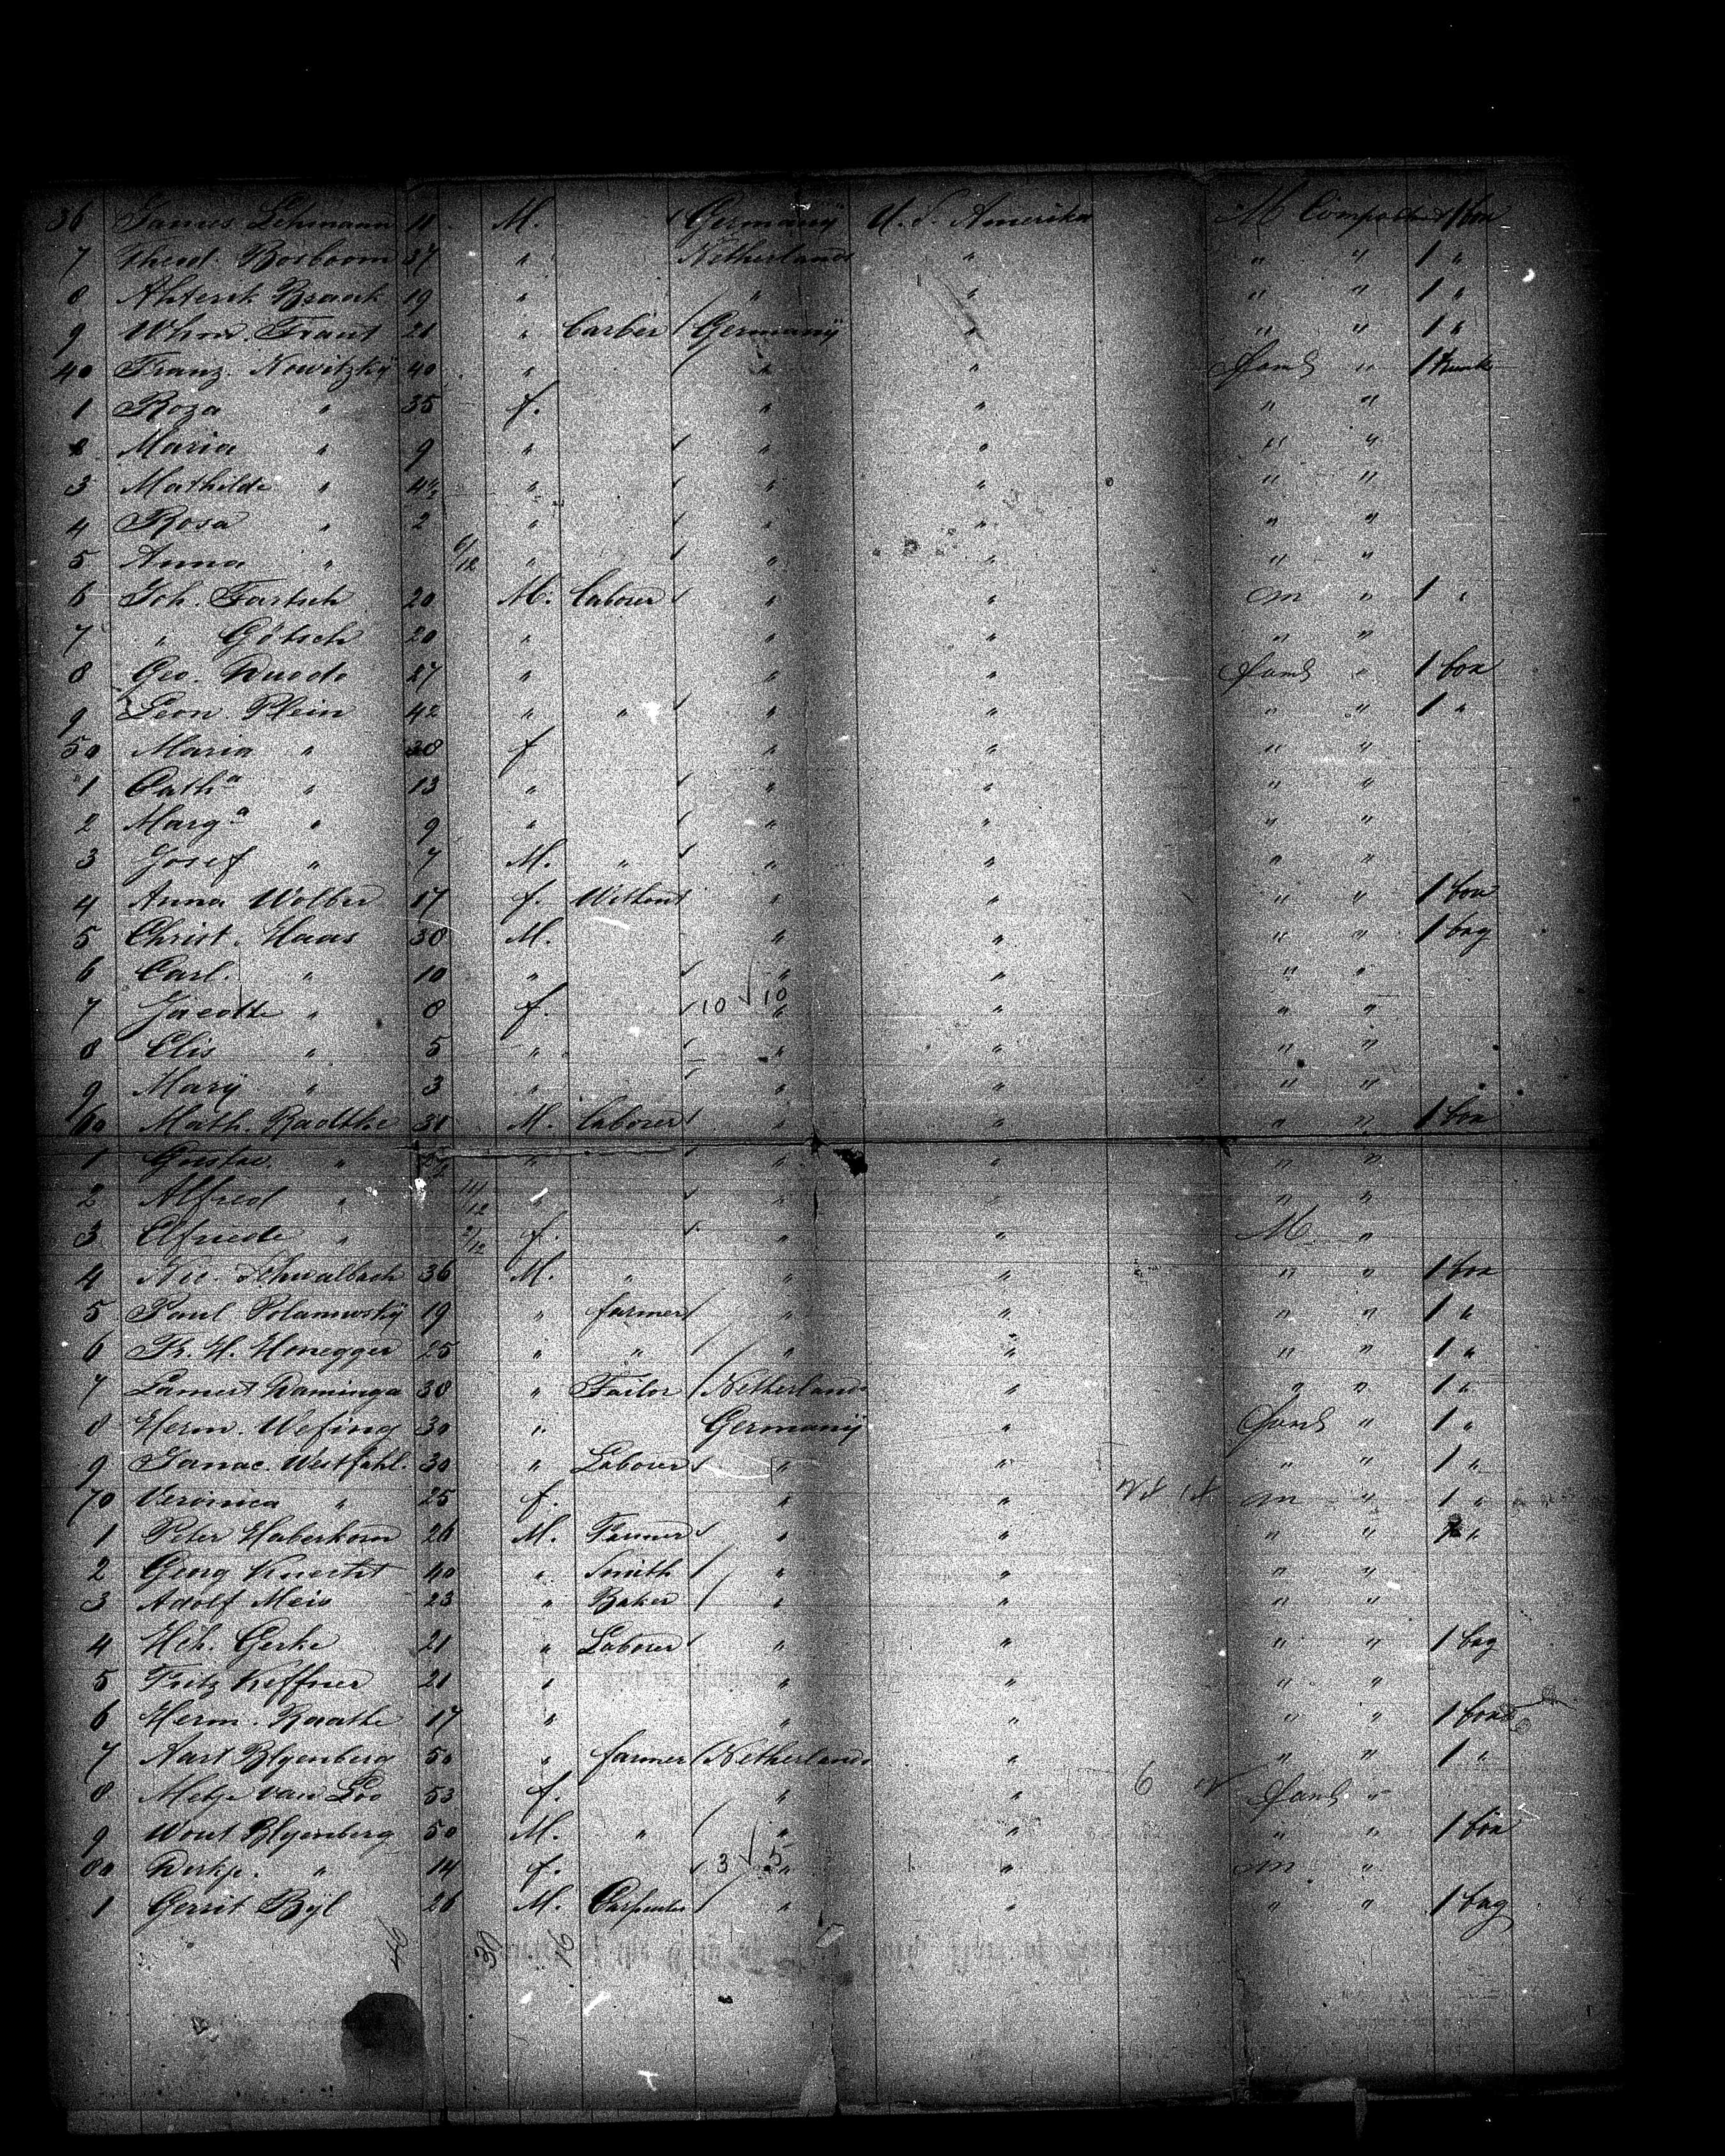 36 James Lehmann 11 M. Germany U. S. Amerika M Compartmt 1 box
7 Theod. Bosboom 37 " Netherlands " " " 1 "
8 Braak 19 " " " " " 1 "
9 Whm. Traut 21 " barbier Germany " " " 1 "
40 Franz. Nowitzky 40 " " " " 1 trunk
1 Roza " 35 f. " " " "
2 Maria " 9 " " " " "
3 Mathilde " 4½ " " " " "
4 Rosa " 2 " " " " "
5 Anna " 6/12 " " " " "
6 Joh. Fartsch 20 M. laborer " " m " 1 "
7 " Götsch 20 " " " " "
8 Geo. 27 " " " " 1 box
9 Leon. Plein 42 " " " " " " 1 "
50 Maria " 38 f " " " "
1 Cathª " 13 " " " " "
2 Margª " 9 " " " " "
3 Josef " 7 M. " " " " "
4 Anna Wolber 17 f. Without " " " " 1 box
5 Christ. Haas 30 M. " " " " 1 bag
6 Carl. " 10 " " " " "
7 " 8 f. 10 10 " " " "
8 Elis " 5 " " " " "
9 Mary " 3 " " " " "
60 Math. Radtke 31 M. laborer " " " " 1 box
1 Gustav. " " " " " "
2 Alfred " 11/12 " " " " "
3 Elfriede " 2/12 f. " " M "
4 Nic. Schwalbach 36 M. " " " " " 1 box
5 Paul 19 " farmer " " " " 1 "
6 Fr. H. Honegger 25 " " " " " " 1 "
7 Lamert Daminga 38 " Tailor Netherlands " " " 1 "
8 Herm. Wefing 30 " Germany " " 1 "
9 Westfahl. 30 " Laborer " " " " 1 "
70 Veronica " 25 f. " " m " 1 "
1 Peter Haberkorn 26 M. Farmer " " " " "
2 Georg Knecht 40 " Smith " " " "
3 Adolf Meis 23 " Baker " " " "
4 Hch. Gerke 21 " Laborer " " " " 1 bag
5 Fritz Keffner 21 " " " " "
6 Herm. Raathe 17 " " " " "
7 Aart Blyenberg 50 " farmer Netherlands " " " 1 "
8 Metje van Loo 53 f. " " 9 "
9 Wout Blyenberg 50 M. " " " " " 1 box
80 Dirkje. " 14 f. 3 5 " " m "
1 Gerrit Byl 26 M. Carpenter " " " " 1 bag
30 16